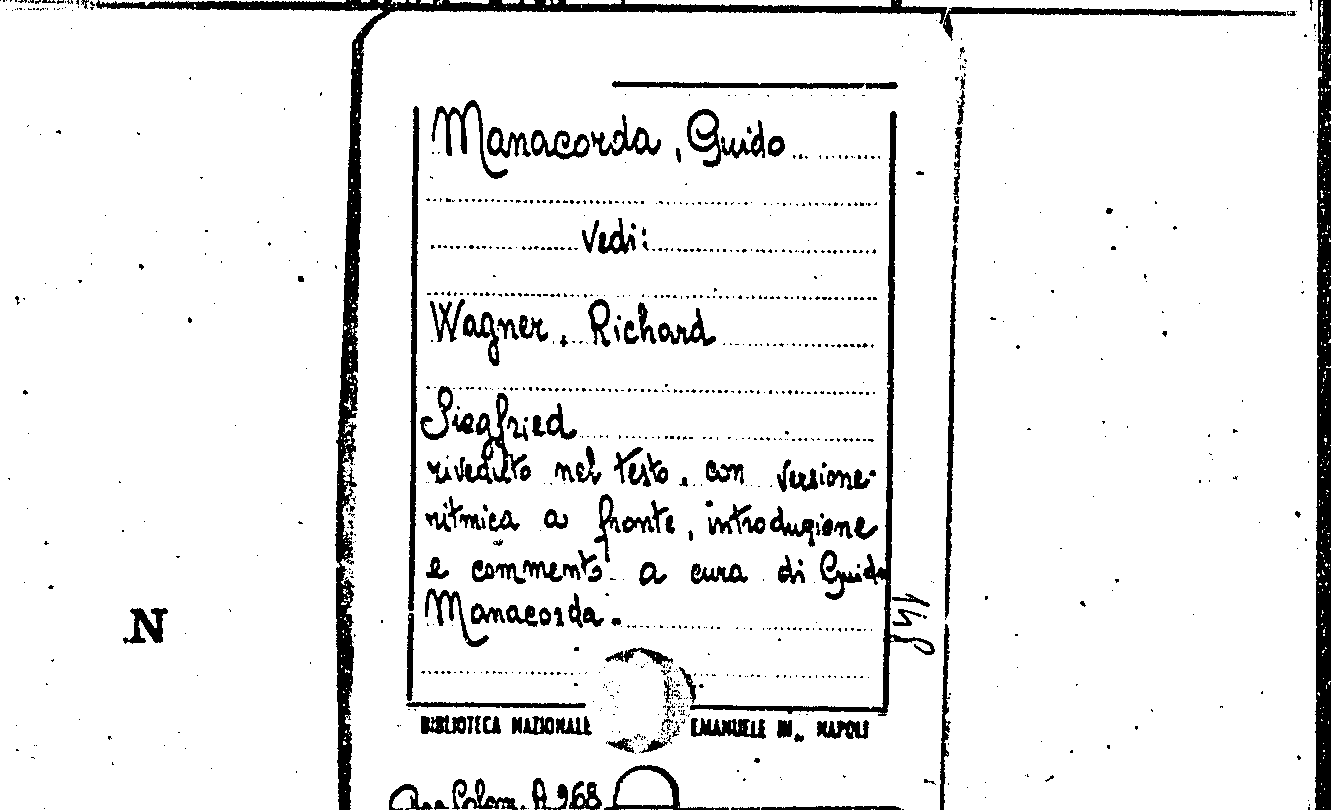 Manacorda, Guido
Vedi:
Wagner, Richard
Siegfried
riveduto nel testo, con versione
ritmica a fronte, introduzione
e commento a cura di Guido
Manacorda.
148
N
BIBLIOTECA NAZIONALE EMANUELE III, NAPOLI
A 968